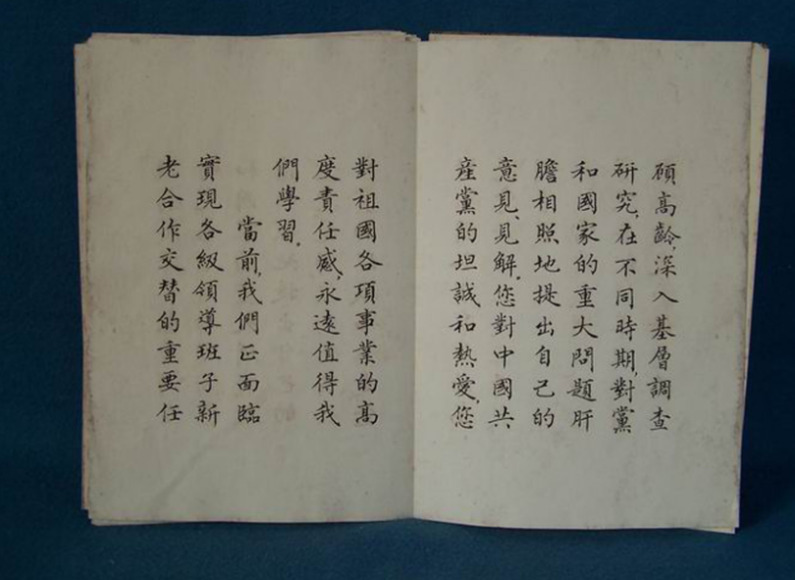 顧高齡,深入基層調查
研究,在不同時期,對黨
和國家的重大問題肝
膽相照地提出自己的
意見、見解,您對中國共
產黨的坦誠和熱愛,您
對祖國各項事業的高
度責任感,永遠值得我
們學習。
當前,我們正面臨
實現各級領導班子新
老合作交替的重要任